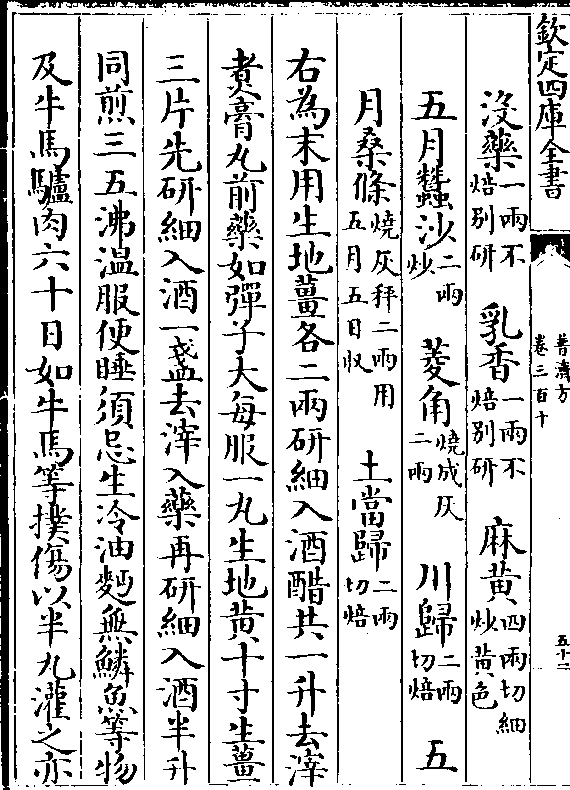 欽定四庫全書
普濟方
卷三百十
五十二
沒藥一兩不焙別研 乳香一兩不焙別研 麻黄四兩切細炒黄色
五月蠶沙二兩炒 菱角燒成灰二兩 川歸二兩切焙 五
月桑條燒灰秤二兩用五月五日收 土當歸二兩切焙
右為末用生地薑各二兩研細入酒醋共一升去滓
煮膏丸前藥如彈子大每服一丸生地黄十寸生薑
三片先研細入酒一盞去滓入藥再研細入酒半升
同煎三五沸温服便睡須忌生冷油麪無鱗魚等物
及牛馬驢肉六十日如牛馬等撲傷以半丸灌之亦